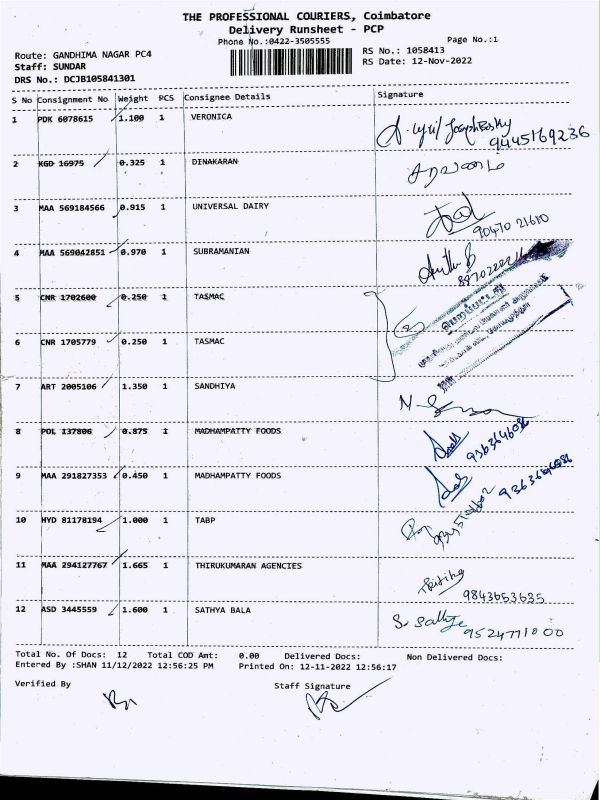 THE PROFESSIONAL COURIERS, Coimbatore
Delivery Runsheet - PCP
Phone No.:0422-3505555
Page No.:1
Route: GANDHIMA NAGAR PC4
RS No.: 1058413
Staff: SUNDAR
RS Date: 12-Nov-2022
DRS No.: DCJB105841301
S No Consignment No Weight PCS Consignee Details Signature
1 PDK 6078615 1.100 1 VERONICA
9445169236
2 KGD 16975 0.325 1 DINAKARAN
சரவணன்
3 MAA 569184566 0.915 1 UNIVERSAL DAIRY
90470 21610
4 MAA 569042851 0.970 1 SUBRAMANIAN
5 CNR 1702600 0.250 1 TASMAC
பெறப்பட்டது
6 CNR 1705779 0.250 1 TASMAC
7 ART 2005106 1.350 1 SANDHIYA
8 POL 137806 0.875 1 MADHAMPATTY FOODS
9 MAA 291827353 0.450 1 MADHAMPATTY FOODS
10 HYD 81178194 1.000 1 TABP
11 MAA 294127767 1.665 1 THIRUKUMARAN AGENCIES
9843653635
12 ASD 3445559 1.600 1 SATHYA BALA
S. Sathya
9524771000
Total No. Of Docs: 12 Total COD Amt: 0.00 Delivered Docs: Non Delivered Docs:
Entered By :SHAN 11/12/2022 12:56:25 PM Printed On: 12-11-2022 12:56:17
Verified By Staff Signature